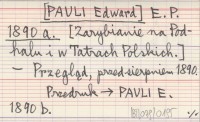 [PAULI Edward] E. P.
1890 a. [Zarybianie na Pod-
halu i w Tatrach Polskich.]
– Przegląd, przed sierpniem 1890.
Przedruk → PAULI E.
1890 b.